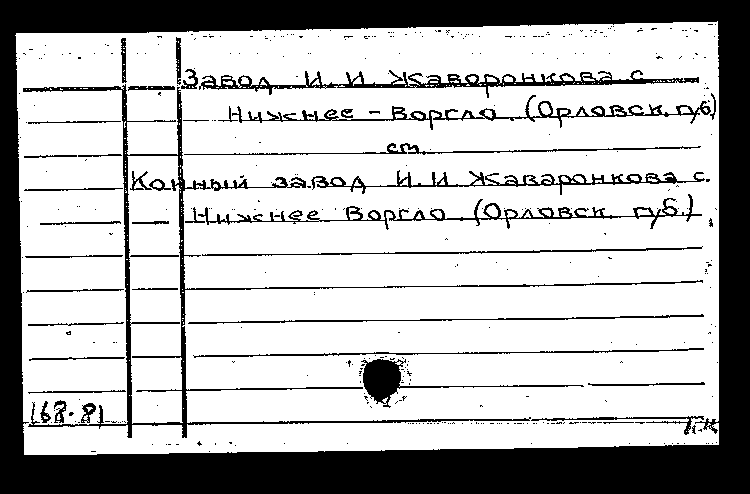 Завод И. И. Жаворонкова с.
Нижнее - Воргло. (Орловск. губ)
см.
Конный завод И. И. Жаваронкова с.
Нижнее Воргло. (Орловск. губ.)
168-81